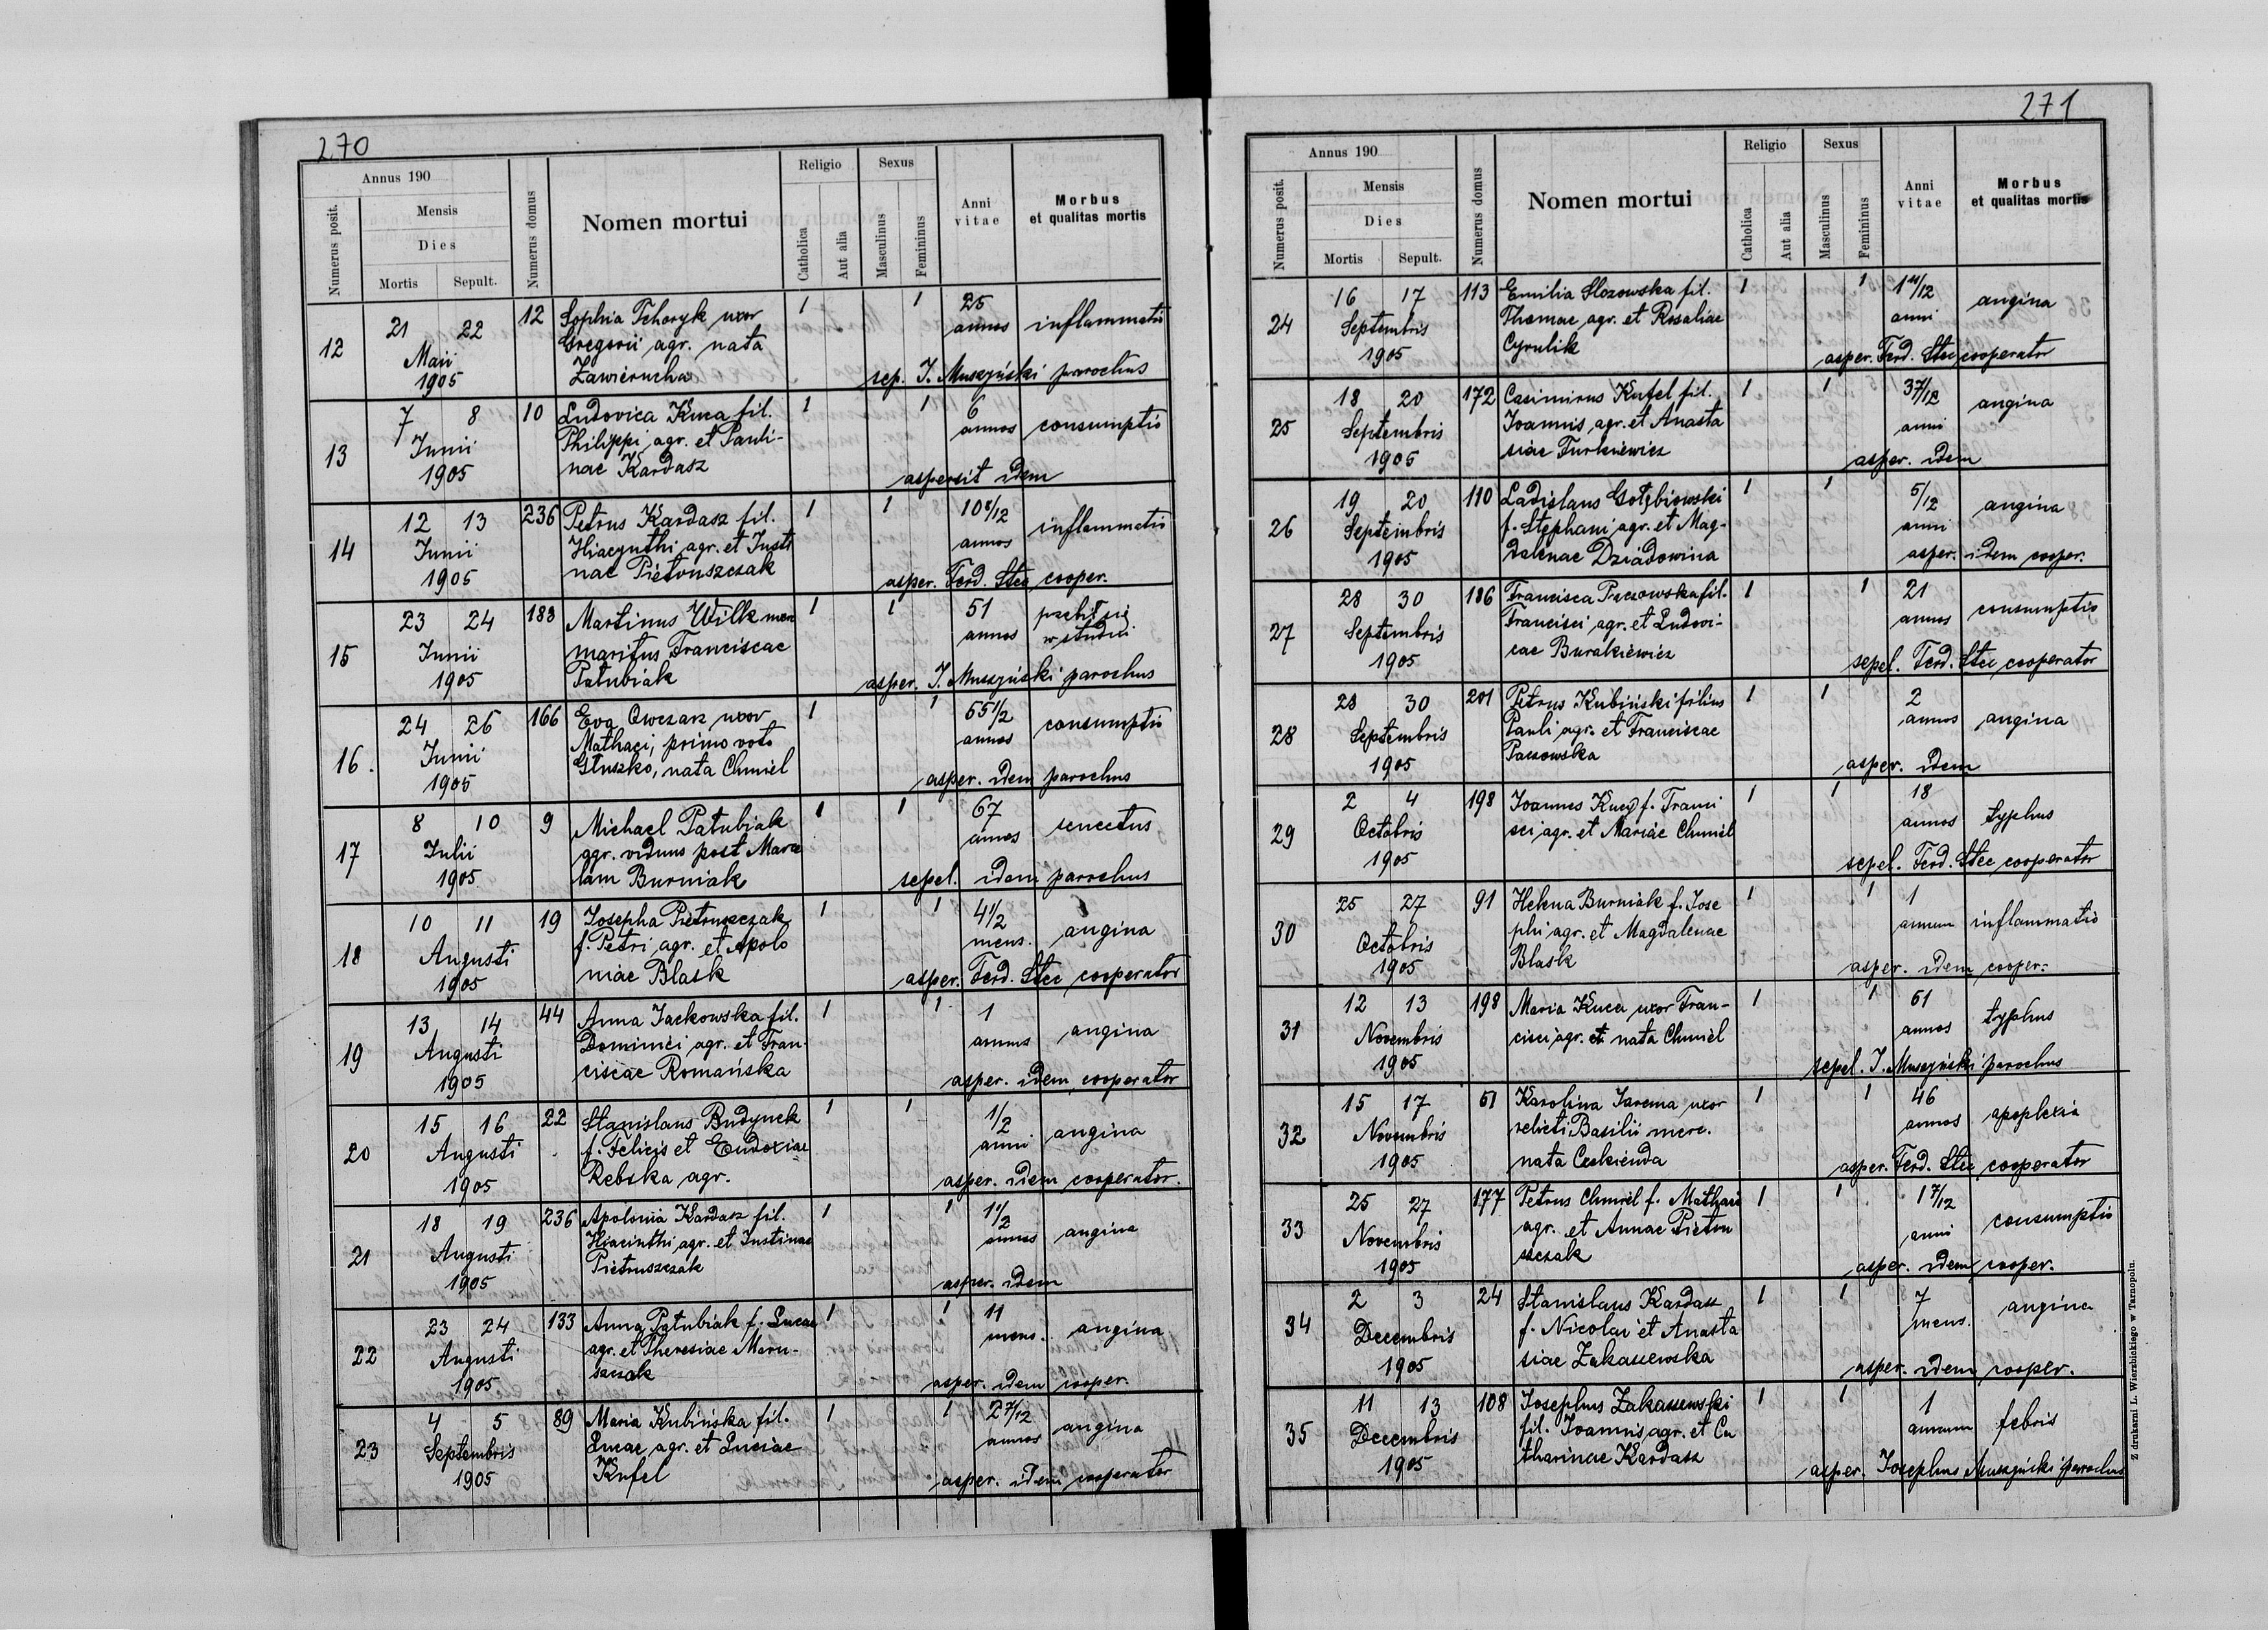 270
Annus 190
Numerus posit.
Mensis
Dies
Mortis Sepult.
Numerus domus
Nomen mortui
Religio
Catholica
Aut alia
Sexus
Masculinus
Femininus
Anni vitae
Morbus
et qualitas mortis
12 21 22 Maii 1905 12 Sophia Tchoryk uxor 1 1 25 annos inflammatio
Gregorii agr. nata
Zawierucha sep. J. Muszyński parochus
13 7 8 Junii 1905 10 Ludovica Kuca fil. 1 1 6 annos consumptio
Philippi agr. et Pauli-
nae Kardasz aspersit idem
14 12 13 Junii 1905 236 Petrus Kardasz fil. 1 1 10 8/12 annos inflammatio
Hiacynthi agr. et Justi
nae Pietruszczak asper. Ferd. Stec cooper.
15 23 24 Junii 1905 183 Martinus Wilk 1 1 51 annos przebił się w studni
maritus Franciscae
Patubiak asper. J. Muszyński parochus
16. 24 26 Junii 1905 166 Eva Owczarz uxor 1 1 55 1/2 annos consumptio
Mathaei, primo voto
Głuszko, nata Chmiel asper. idem parochus
17 8 10 Julii 1905 9 Michael Patubiak 1 1 67 annos senectus
agr. viduus post Maria
lam Burniak sepel. idem parochus
18 10 11 Augusti 1905 19 Josepha Pietruszczak 1 1 4 1/2 mens. angina
f. Petri agr. et Apolo
niae Blask asper. Ferd. Stec cooperator
19 13 14 Augusti 1905 44 Anna Jackowska fil. 1 1 1 annus angina
Dominici agr. et Fran-
ciscae Romańska asper. idem cooperator
20 15 16 Augusti 1905 22 Stanislaus Budynek 1 1 1/2 anni angina
f. Felicis et Eudoxiae
Rebska agr. asper. idem cooperator.
21 18 19 Augusti 1905 236 Apolonia Kardasz fil. 1 1 1 1/2 annos angina
Hiacinthi agr. et Justinae
Pietruszczak asper. idem
22 23 24 Augusti 1905 133 Anna Patubiak f. Lucae 1 1 11 mens. angina
agr. et Theresiae Maru-
szczak asper. idem cooper.
23 4 5 Septembris 1905 89 Maria Kubińska fil. 1 1 2 7/12 annos angina
Lucae agr. et Luciae
Kufel asper. idem cooperator
271
Annus 190
Numerus posit.
Mensis
Dies
Mortis Sepult.
Numerus domus
Nomen mortui
Religio
Catholica
Aut alia
Sexus
Masculinus
Femininus
Anni vitae
Morbus
et qualitas mortis
24 16 17 Septembris 1905 113 Emilia Slozowska fil. 1 1 1 11/12 anni angina
Thomae agr. et Rosaliae
Cyrulik asper. Ferd. Stec cooperator
25 18 20 Septembris 1905 172 Casimirus Kufel fil. 1 1 3 7/12 anni angina
Joannis agr. et Anasta
siae Turkiewicz asper. idem
26 19 20 Septembris 1905 110 Ladislaus Gołębiowski 1 1 5/12 anni angina
f. Stephani agr. et Mag-
dalenae Dziadowina asper. idem cooper.
27 28 30 Septembris 1905 186 Francisca fil. 1 1 21 annos consumptio
Francisci agr. et Ludovi-
cae Burakiewicz sepel. Ferd. Stec cooperator
28 28 30 Septembris 1905 201 Petrus Kubiński filius 1 1 2 annos angina
Pauli agr. et Franciscae
asper. idem
29 2 4 Octobris 1905 198 Joannes Kuca f. Franci 1 1 18 annos typhus
sci agr. et Mariae Chmiel
sepel. Ferd. Stec cooperator
30 25 27 Octobris 1905 91 Helena Burniak f. Jose 1 1 1 annum inflammatio
phi agr. et Magdalenae
Blask asper. idem cooper.
31 12 13 Novembris 1905 198 Maria Kuca uxor Fran- 1 1 61 annos typhus
cisci agr. et nata Chmiel
sepel. J. Muszyński parochus
32 15 17 Novembris 1905 61 Karolina Jarema uxor 1 1 46 annos apoplexia
relicti Basilii merc.
nata Cerkienda asper. Ferd. Stec cooperator
33 25 27 Novembris 1905 177 Petrus Chmiel f. Mathaei 1 1 1 7/12 anni consumptio
agr. et Annae Pietru
szczak asper. idem cooper.
34 2 3 Decembris 1905 24 Stanislaus Kardasz 1 1 7 mens. angina
f. Nicolai et Anasta
siae Zakaszewska asper. idem cooper.
35 11 13 Decembris 1905 108 Josephus Zakaszewski 1 1 1 annum febris
fil. Joannis agr. et Ca
tharinae Kardasz asper. Josephus Muszyński parochus
Z drukarni L. Wierzbickiego w Tarnopolu.